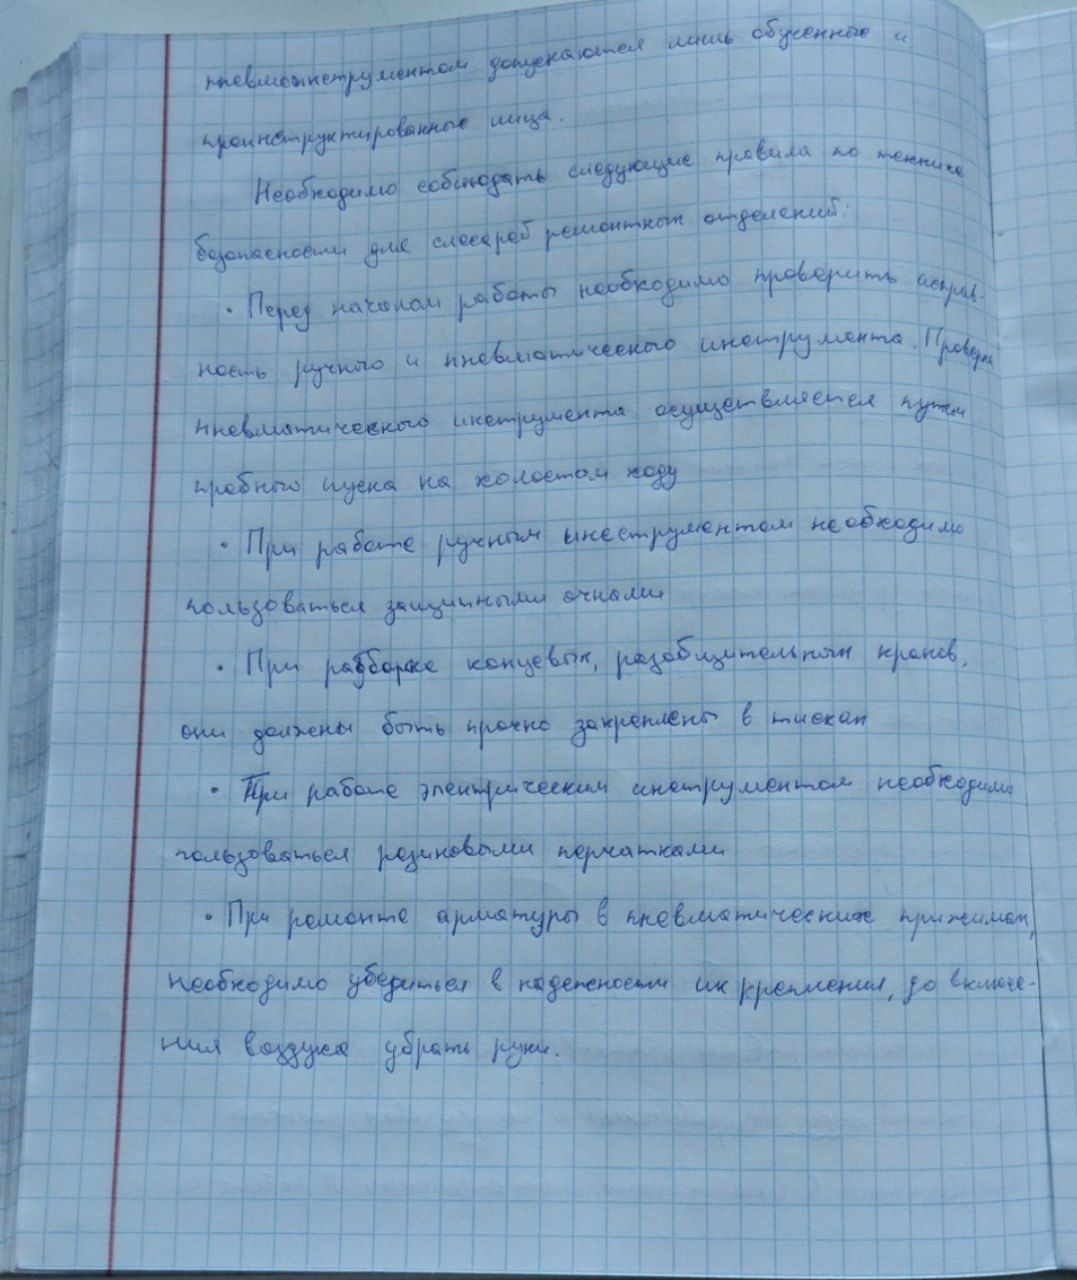 пневмоинструментом допускаются лишь обученные и
проинструктированные лица.
Необходимо соблюдать следующие правила по технике
безопасности для слесарей ремонтных отделений:
• Перед началом работы необходимо проверить исправ-
ность ручного и пневматического инструмента. Проверка
пневматического инструмента осуществляется путем
пробного пуска на холостом ходу
• При работе ручным инструментом необходимо
пользоваться защитными очками
• При разборке концевых, разобщительных кранов,
они должены быть прочно закреплены в тисках
• При работе электрическим инструментом необходимо
пользоваться резиновыми перчатками
• При ремонте арматуры в пневматических прижимах,
необходимо убедиться в надежности их крепления, до включе-
ния воздуха убрать руки.